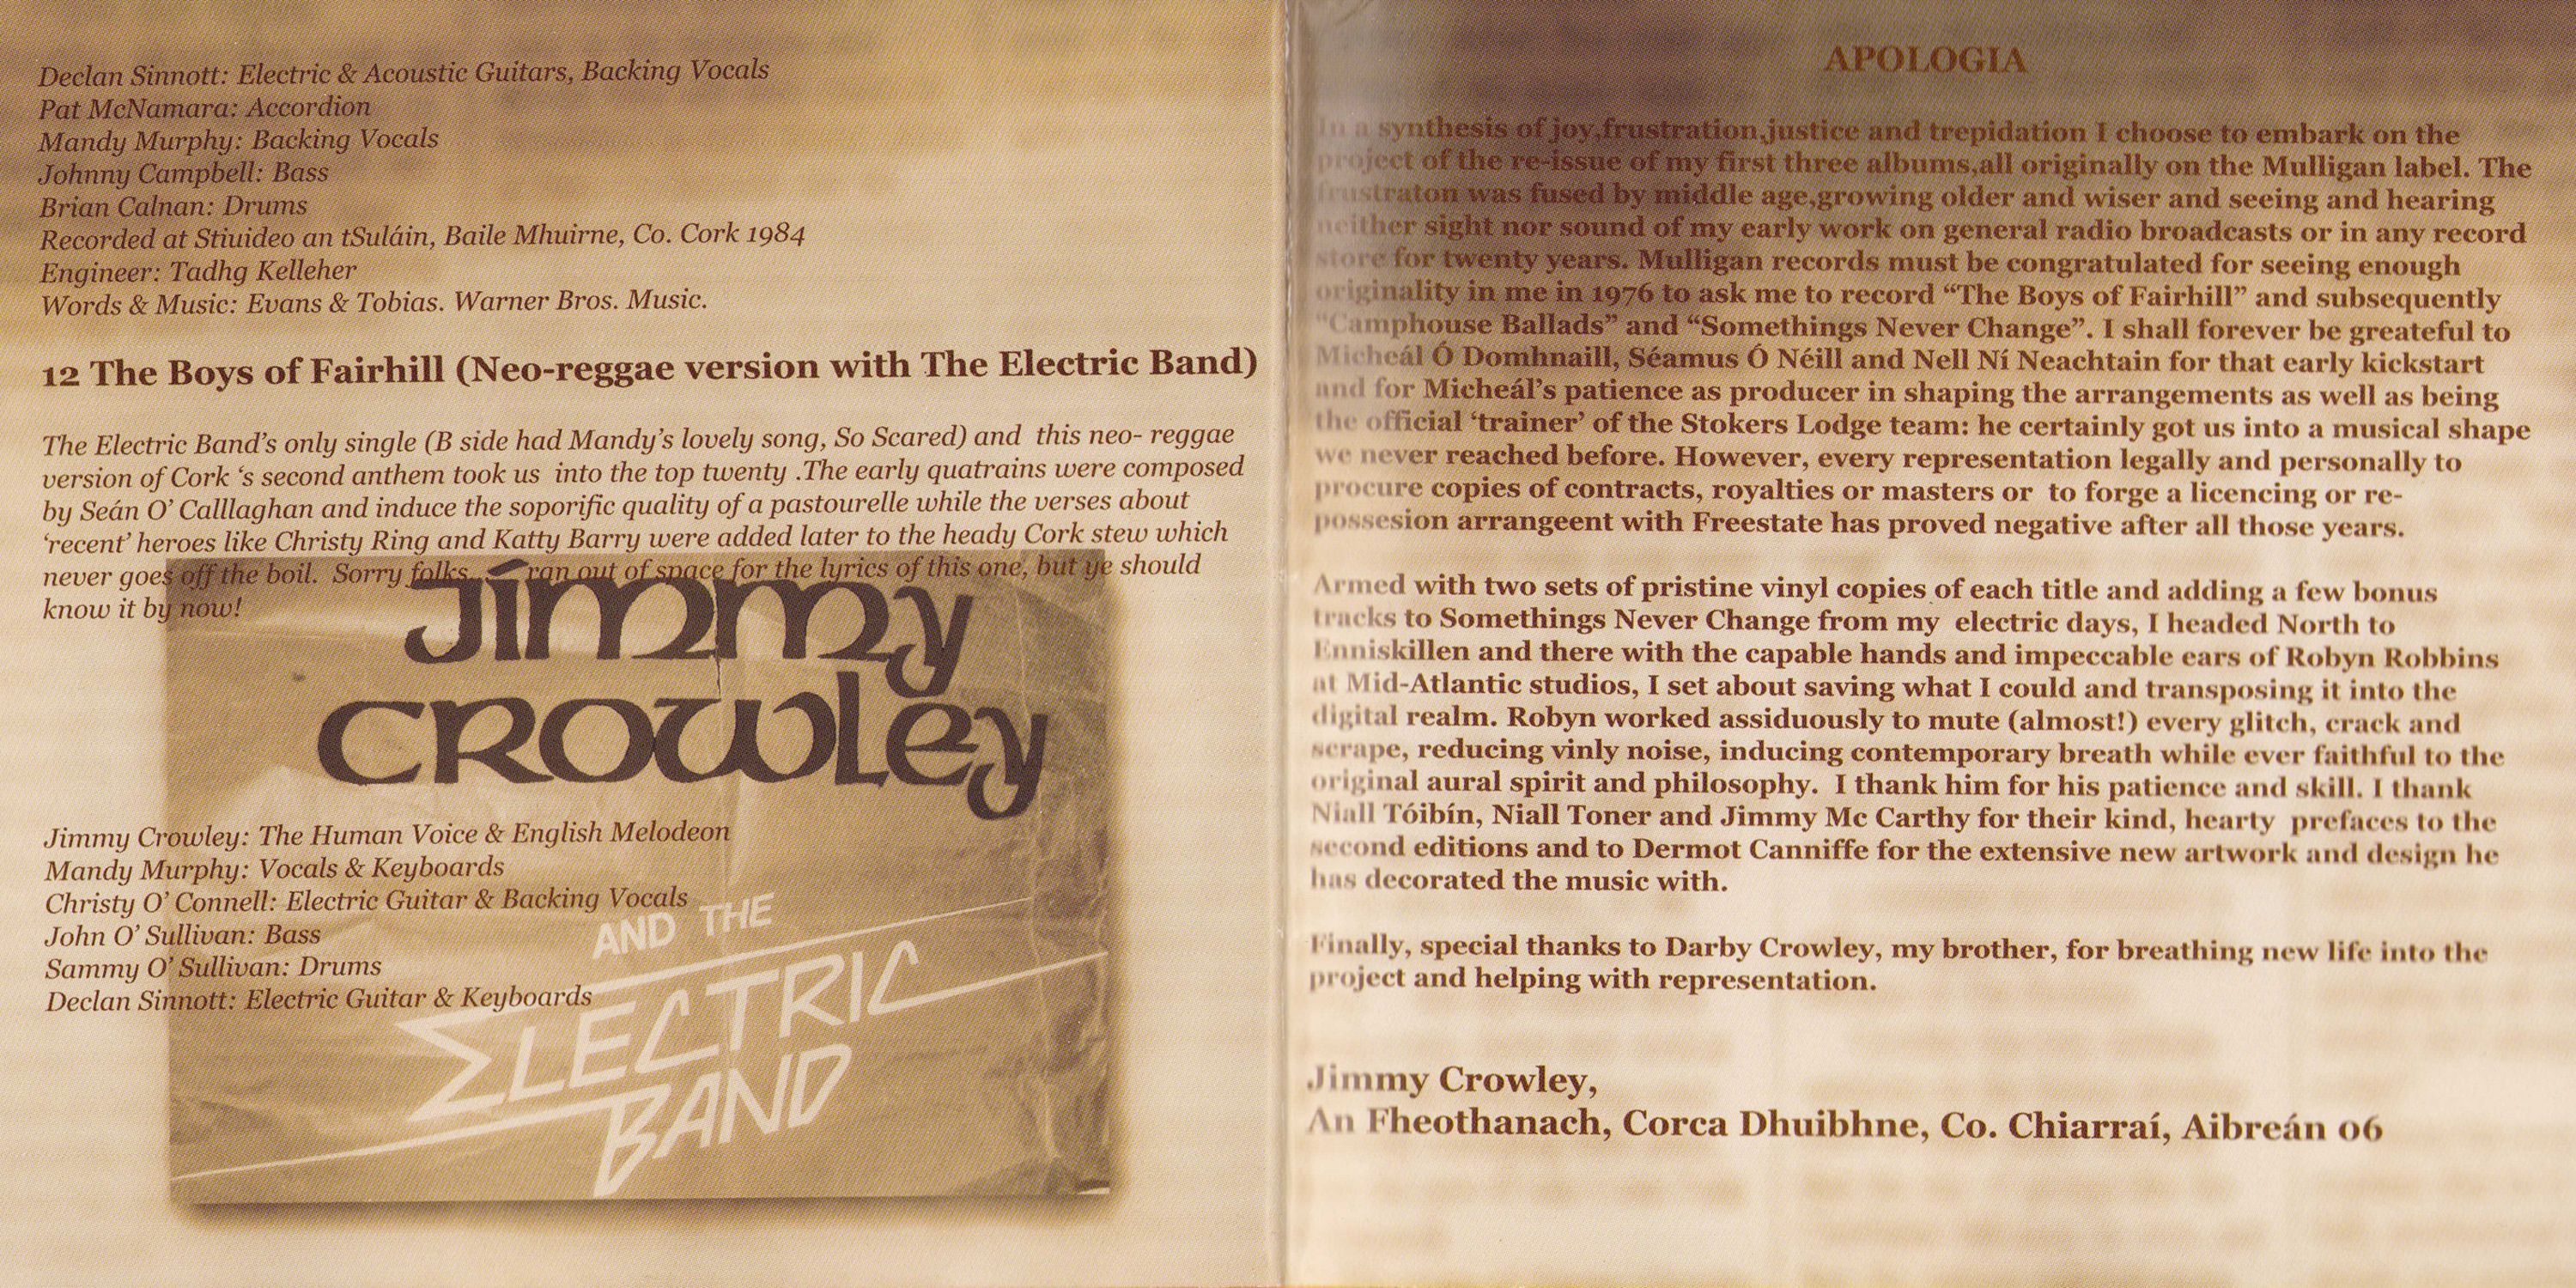 Declan Sinnott: Electric & Acoustic Guitars, Backing Vocals
Pat McNamara: Accordion
Mandy Murphy: Backing Vocals
Johnny Campbell: Bass
Brian Calnan: Drums
Recorded at Stiuideo an tSuláin, Baile Mhuirne, Co. Cork 1984
Engineer: Tadhg Kelleher
Words & Music: Evans & Tobias. Warner Bros. Music.
12 The Boys of Fairhill (Neo-reggae version with The Electric Band)
The Electric Band's only single (B side had Mandy's lovely song, So Scared) and this neo- reggae
version of Cork 's second anthem took us into the top twenty .The early quatrains were composed
by Seán O' Calllaghan and induce the soporific quality of a pastourelle while the verses about
'recent' heroes like Christy Ring and Katty Barry were added later to the heady Cork stew which
never goes off the boil. Sorry folks, ran out of space for the lyrics of this one, but ye should
know it by now!
Jímmy
Crowley
Jimmy Crowley: The Human Voice & English Melodeon
Mandy Murphy: Vocals & Keyboards
Christy O' Connell: Electric Guitar & Backing Vocals
John O' Sullivan: Bass
Sammy O' Sullivan: Drums
Declan Sinnott: Electric Guitar & Keyboards
AND THE
ELECTRIC
BAND
APOLOGIA
In a synthesis of joy,frustration,justice and trepidation I choose to embark on the
project of the re-issue of my first three albums,all originally on the Mulligan label. The
frustraton was fused by middle age,growing older and wiser and seeing and hearing
neither sight nor sound of my early work on general radio broadcasts or in any record
store for twenty years. Mulligan records must be congratulated for seeing enough
originality in me in 1976 to ask me to record “The Boys of Fairhill” and subsequently
“Camphouse Ballads” and “Somethings Never Change”. I shall forever be greateful to
Micheál Ó Domhnaill, Séamus Ó Néill and Nell Ní Neachtain for that early kickstart
and for Micheál's patience as producer in shaping the arrangements as well as being
the official 'trainer' of the Stokers Lodge team: he certainly got us into a musical shape
we never reached before. However, every representation legally and personally to
procure copies of contracts, royalties or masters or to forge a licencing or re-
possesion arrangeent with Freestate has proved negative after all those years.
Armed with two sets of pristine vinyl copies of each title and adding a few bonus
tracks to Somethings Never Change from my electric days, I headed North to
Enniskillen and there with the capable hands and impeccable ears of Robyn Robbins
at Mid-Atlantic studios, I set about saving what I could and transposing it into the
digital realm. Robyn worked assiduously to mute (almost!) every glitch, crack and
scrape, reducing vinly noise, inducing contemporary breath while ever faithful to the
original aural spirit and philosophy. I thank him for his patience and skill. I thank
Niall Tóibín, Niall Toner and Jimmy Mc Carthy for their kind, hearty prefaces to the
second editions and to Dermot Canniffe for the extensive new artwork and design he
has decorated the music with.
Finally, special thanks to Darby Crowley, my brother, for breathing new life into the
project and helping with representation.
Jimmy Crowley,
An Fheothanach, Corca Dhuibhne, Co. Chiarraí, Aibreán 06